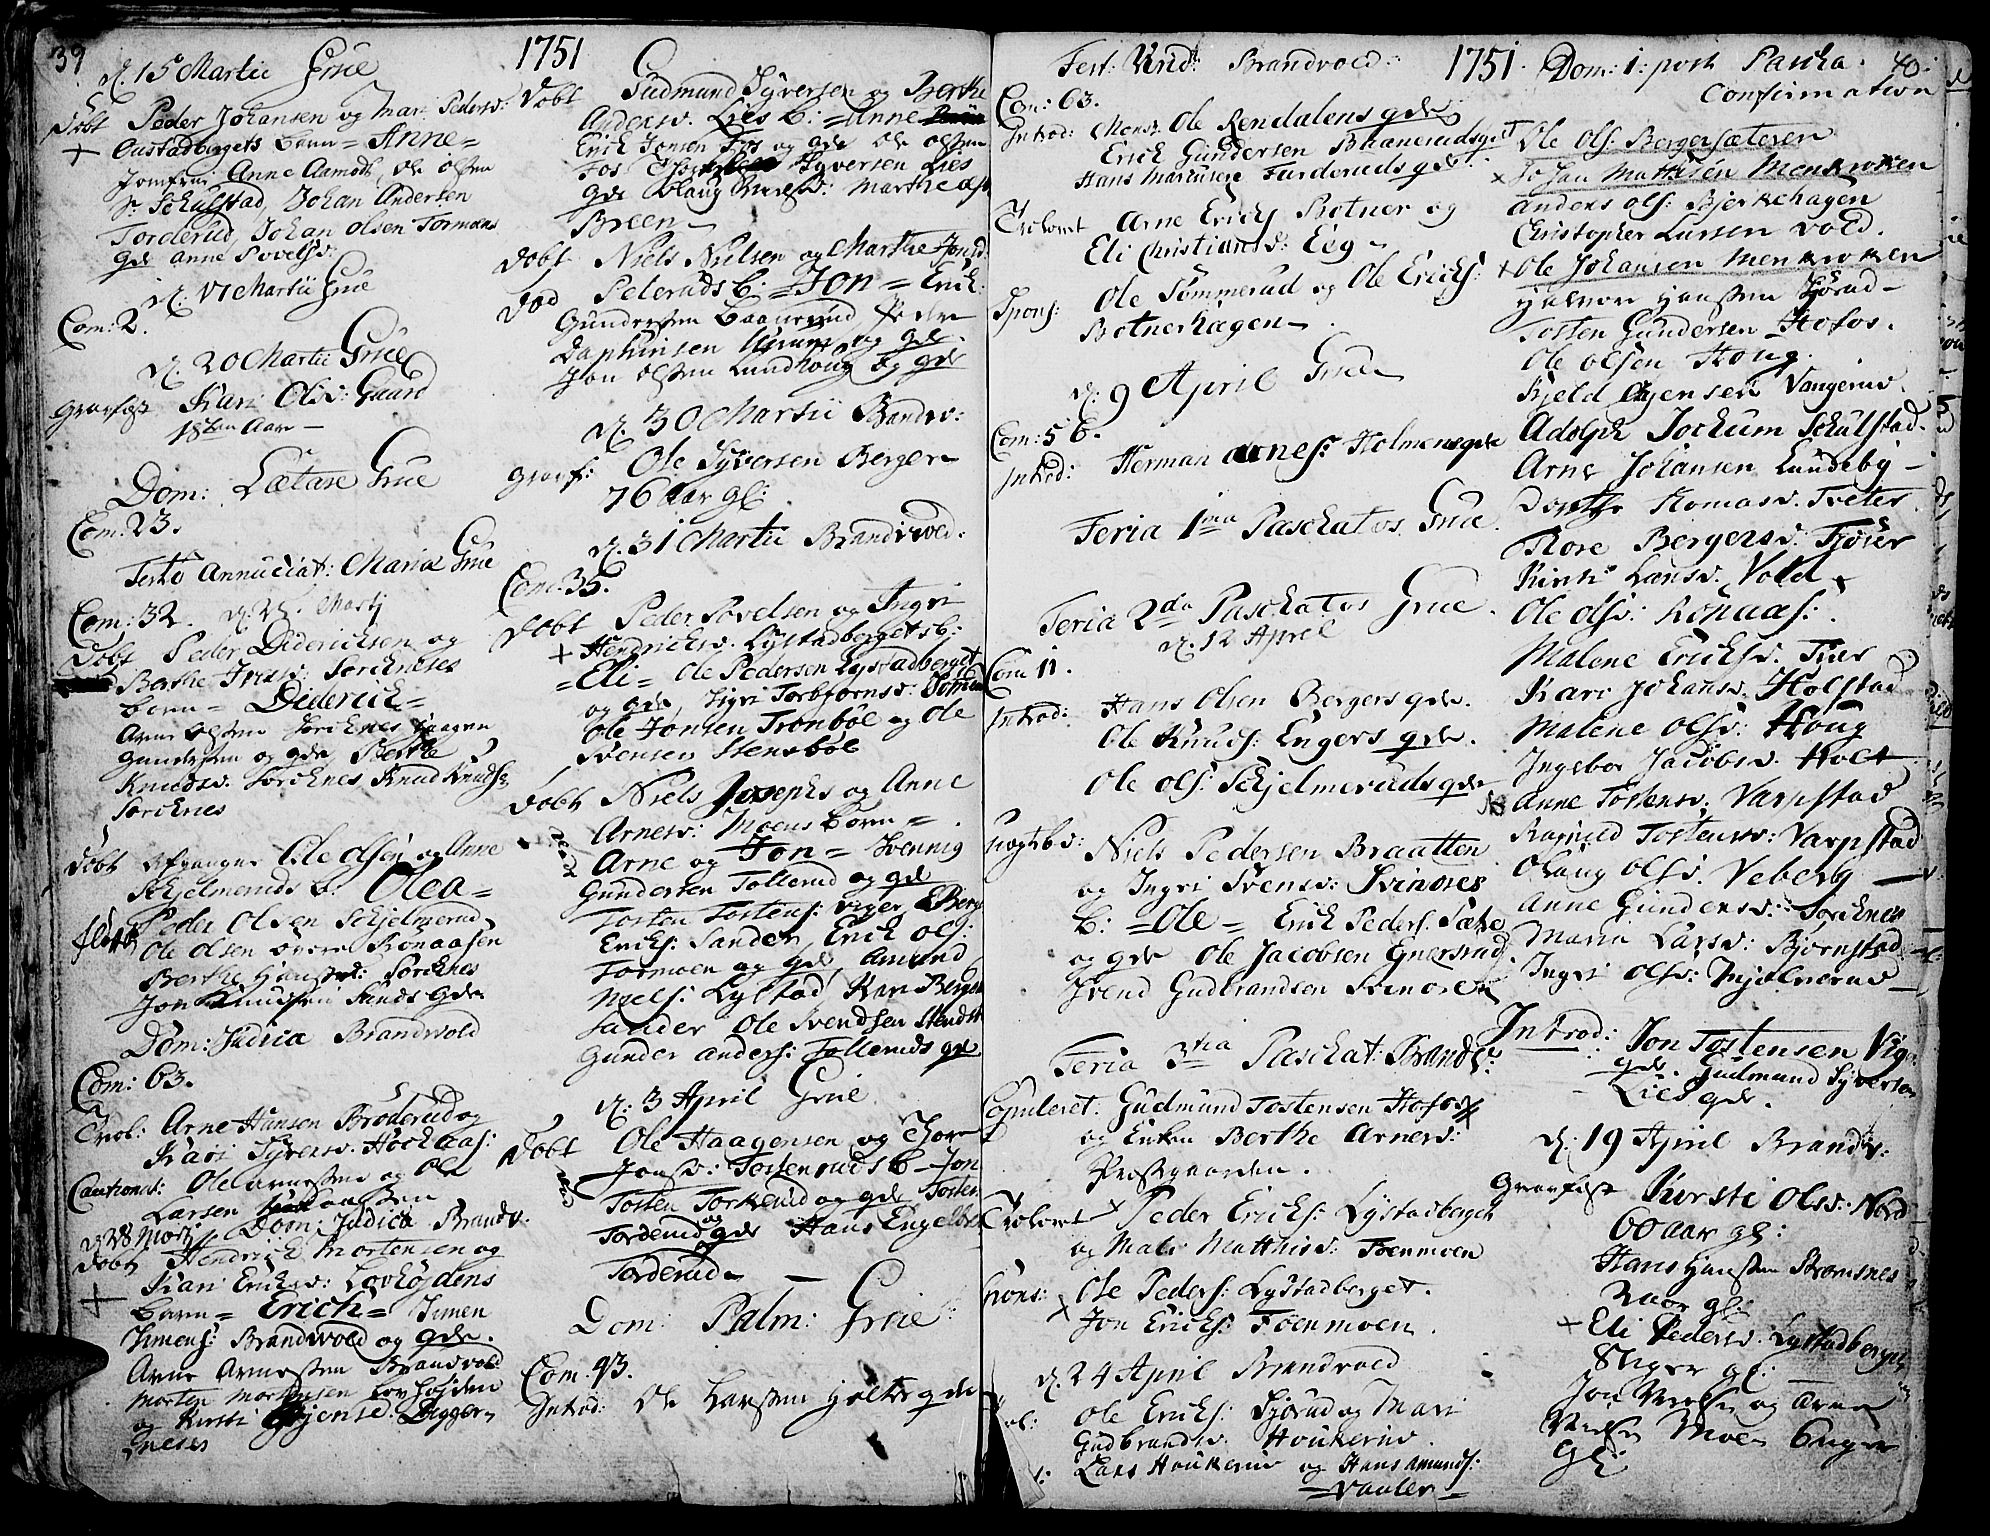 39
1751
d. 15 Martii Grue
Döbt Peder Johansen og Mari Pedersd:
Gustadbergets barn = Anne =
Jomfru Anne Aamodt, Ole Olsen
Sr. Schulstad, Johan Andersen
Torderud, Johan Olsen Tormoens
gde Anne Povelsd:
d. 17 Martii Grue
Com: 2.
d. 20 Martii Grue
Gravfæst Kari Olsd: Gaard
18 Aar
Dom: Lætare Grue
Com: 23.
Festo Annuciat: Mariæ Grue
Com: 32. d. 25. Martj
Döbt Peder Diderichsen og
Berthe Iversd: Sorcknes
barn = Diderich =
Arne Olsen Sorcknes Haagen
Gundersen og gde Berthe
Knudsd. Sorcknes Knud Knuds:
Sorcknes
Döbt Ole Olsen og Anne
Schjelmeruds b: Olea =
Peder Olsen Schjelmerud
Ole Olsen Ronaasen
Berthe Hansd: Sorcknes
Jon Knudsen Sands gde
Dom: Judica Brandvold
Com: 63.
Trol: Arne Hansen Broderud og
Kari Syversd. Hockaas:
Cautionat: Ole Arnesen og Ole
Larsen
d. 28 Martj Dom: Judica Brandv.
Döbt Hendrich Mortensen og
Kari Ericksd: Lovhöjdens
barn = Erich = Simen
Simens: Brandvold og gde.
Arne Arnesen Brandvold
Morten Mortensen Lovhöjden
og Kirsti Jensd. Digger-
neset
Döbt Gudmund Syversen og Berthe
Andersd. Lies b: = Anne
Erich Jonsen Fos og gde Ole Olsen
Fos Syversen Lies
gde Marthe
Breen
Döbt Niels Nielsen og Marthe Jonsd.
Död Peteruds b: = Jon = Erich
Gundersen Baanerud Peder
og gde
Jon Olsen Lundhoug og gde
d. 30 Martii Brandv:
Gravf: Ole Syversen Berger
76 Aar gl:
d. 31 Martii Brandvold.
Com: 35.
Döbt Peder Povelsen og Ingri
+ Hendricksd. Lystadbergets b:
= Eli = Ole Pedersen Lystadberget
og gde, Sigri Torbjörnsd:
Ole Jonsen Tronböe og Ole
Svensen Stensböe
Döbt Niels Josephs og Anne
Arnesd: Moens börn =
Arne og Jon = Svennig
Gundersen Tollerud og gde
Tosten Tostens: Viger
Ericks: Sander, Erich Ols:
Tormoen og gde, Amund
Niels: Lystad, Kari Berger
Sander Ole Svendsen
Gunder Anders: Tolleruds gde
d. 3 April Grue
Döbt Ole Haagensen og Thore
Jonsd: Tostenruds b = Jon
Tosten Torkerud og gde Tosten
Torderud og gde Hans Engelb
Torderud
Dom: Palm: Grue
Com: 43.
Introd: Ole Larsen Holters gde
Fest: Virid: Brandvold:
1751.
Com: 63.
Introd: Mons: Ole Rendalens gde
Erick Gundersen Baaneruds gde
Hans Marcusens Furderuds gde
Trolovet Arne Ericks Botner og
Eli Christiansd: Eeg
Spons: Ole Sömmerud og Ole Ericks:
Botnerhagen
d. 9 April Grue
Com: 56.
Introd: Herman Arnes: Holmens gde
Feria 1ma Paschatos Grue
Feria 2da Paschatos Grue.
d. 12 April
Com 11.
Introd: Hans Olsen Bergers gde.
Ole Knuds: Engers gde.
Ole Ols: Schjelmeruds gde
Niels Pedersen Braatten
og Ingri Svensd: Svinoses
b: = Ole = Erick Peders: Sæte
og gde Ole Jacobsen Enersrud
Svend Gudbrandsen Svinosen
Feria 3tia Paschat: Brandv:
Copuleret. Gudmund Tostensen Hofos
og Enken Berthe Arnesd:
Præstgaarden.
Trolovet Peder Ericks: Lystadberget
og Mali Matthisd: Foenmoen
Spons: Ole Peders: Lystadberget.
Jon Ericks: Foenmoen.
d. 24 April Brandvold
Ole Ericks: Sjörud og Mari
Gudbrandsd. Houkerud.
Lars Houkerud og Hans Amunds:
= Vaaler =
Dom: 1: post Pascha.
40.
Confirmation
Ole Ols: Bergersæteren
Johan Mattisen Menkroken
Anders Ols: Bjerkehagen
Christopher Larsen Vold.
Ole Johansen Menkroken
Halvor Hansen Sjörud
Tosten Gundersen Hofos.
Ole Olsen Houg.
Kjeld Hensen Vangerud.
Adolph Jochum Schulstad.
Arne Johansen Lundeby
Dorthe Thomasd. Tveter
Thore Bergersd. Tjöser
Kirsti Larsd. Vold
Ole Olsd: Ronaas:
Malene Ericksd. Tier
Kari Johansd. Holstad
Malene Olsd: Houg
Ingebor Jacobsd. Holt
Anne Tostensd. Varpstad
Ragnild Tostensd: Varpstad
Olaug Olsd. Veberg
Anne Gundersd: Sorcknes
Maria Larsd: Björnstad
Ingri Olsd: Mjölnerud
Introd: Jon Tostensen Vig
gde. Gudmund Syversen
Lies gde.
d: 19 April Brandv:
Gravfæst Kirsti Olsd: Nord
60 aar gl:
Hans Hansen Strömsnes
2 aar gl:
+ Eli Pedersd. Lystadberget
8 uger gl:
Jon Nielsen og Arne
Nielsen Moen 6 uger
gl: